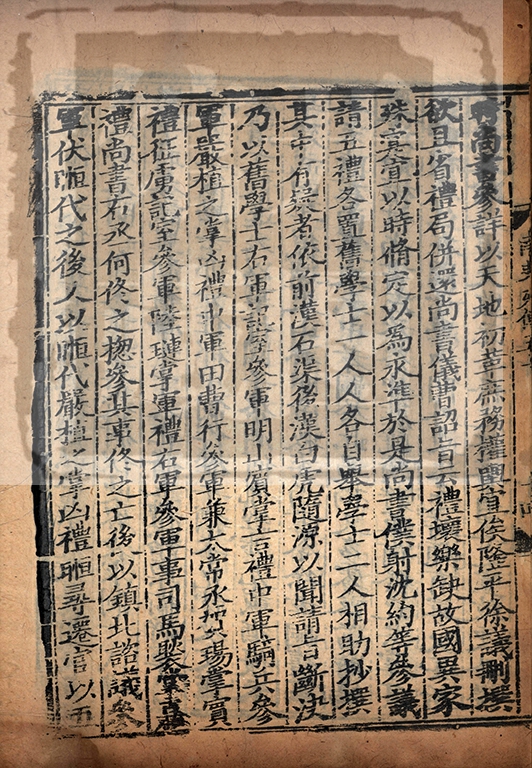 尚書參詳以天地初革庶務權輿宜俟隆平徐議刪撰
欲且省禮局併還尚書儀曹詔旨云禮壞樂缺故國異家
殊實宜以時脩定以爲永準於是尚書僕射沈約等參議
請五禮各置舊學士一人人各自舉學士二人相助抄撰
其中有疑者依前漢石渠後漢白虎隨源以聞請旨斷決
乃以舊學士右軍記室參軍明山賓掌吉禮中軍騎兵參
軍嚴植之掌凶禮中軍田曹行參軍兼太常丞賀瑒掌賓
禮征虜記室參軍陸璉掌軍禮右軍參軍事司馬褧掌嘉
禮尚書右丞何佟之揔參其事佟之亡後以鎮北諮議參
軍伏暅代之後又以暅代嚴植之掌凶禮暅尋遷官以五